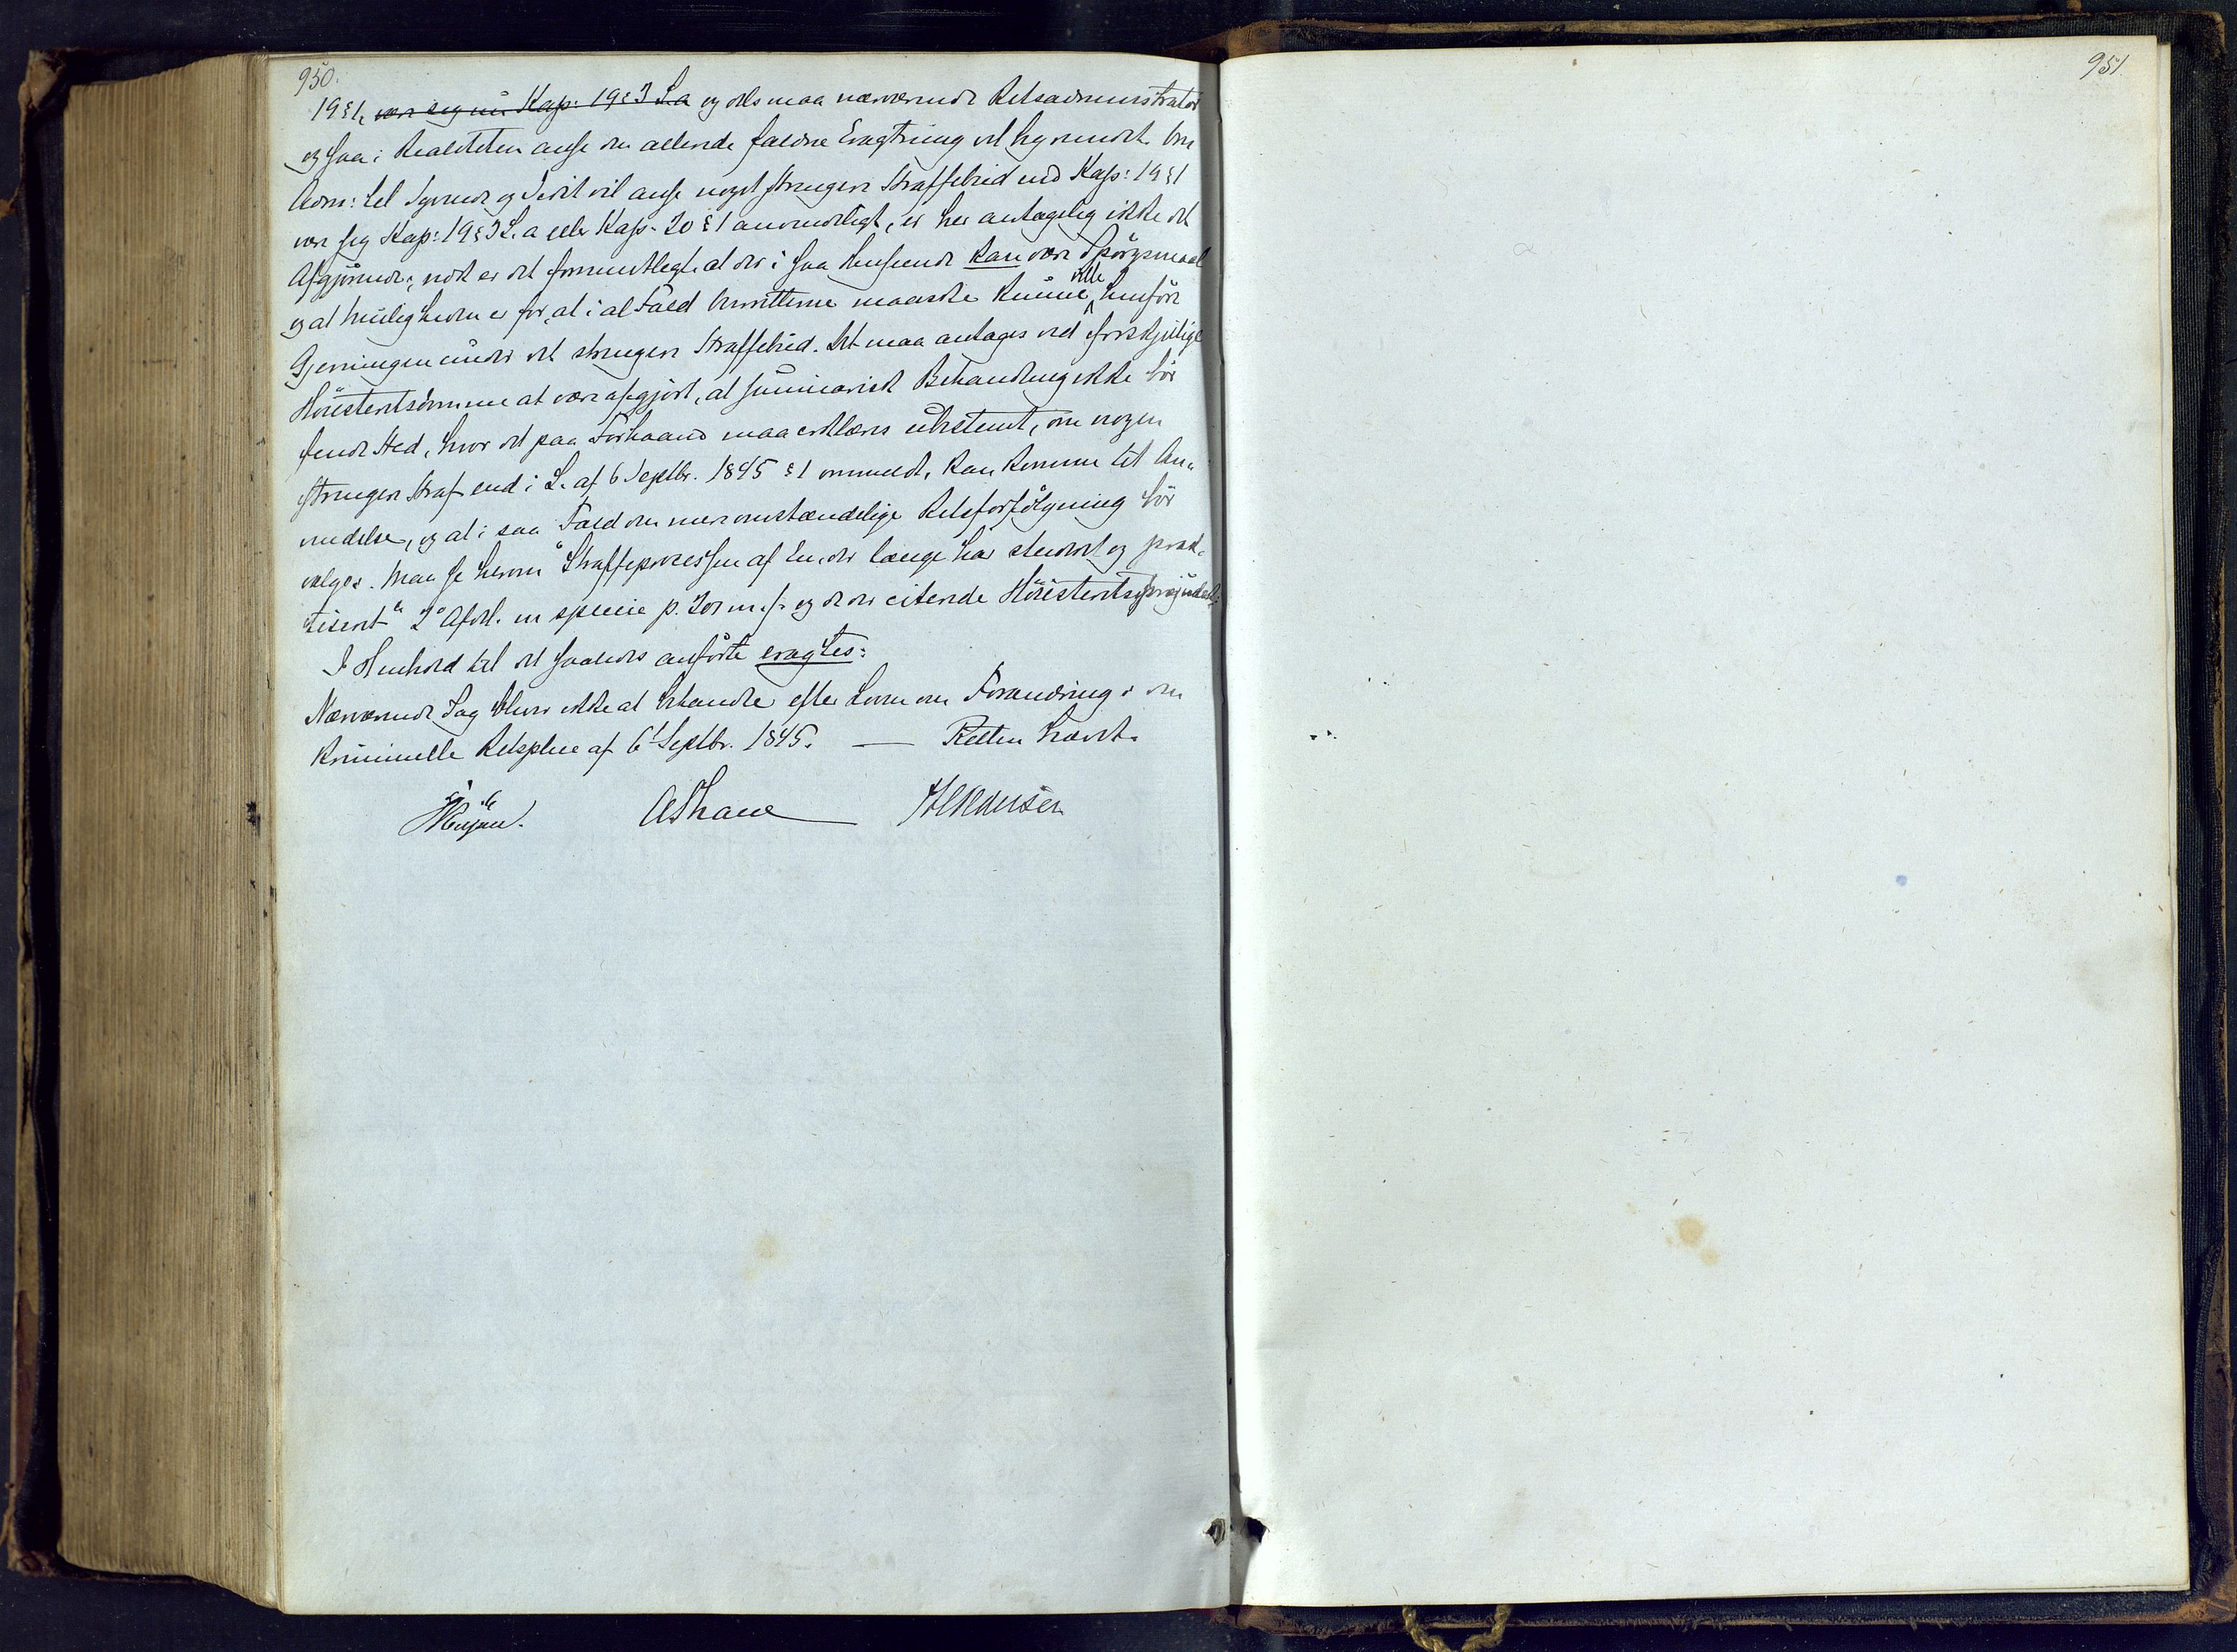 950.
19 § 1, vær sig nu Kap: 19 § 3 L. a og dels maa nærværende Retsadministrator
ogsaa i Realiteten anse den allerede faldne Eragtning vel begrundet. Om
Adm: til Syvende og Sidst vil anse noget strengere Straffebud end Kap: 19 § 1
være sig Kap: 19 § 3 L. a eller Kap. 20 § 1 anvendeligt, er her antagelig ikke det
Afgjørende; nok er det formentlegt at der i saa Henseende kan være Spørgsmaal
og at Muligheden er for, at i al Fald Overretterne maaske kunne ville henføre
Gjerningen under det strengere Straffebud. Det maa antages ved forskjellige
Höiesteretsdomme at være afgjort, at summarisk Behandling ikke bör
finde Sted, hvor det paa Forhaand maa erklæres ubestemt, om nogen
strengere Straf end i L. af 6 Septbr. 1845 § 1 ommeldt, kan komme til An-
vendelse, og at i saa Fald den mere omstændelige Retsforfölgning bör
vælges. Man se herom "Straffeprocessen af En, der længe har studeret og prak-
tiseret" 2° Afdl. in specie p. 201 m. f. og de der citerede Höiesteretspræjudicat:
I Henhold til det saaledes anførte eragtes:
Nærværende Sag bliver ikke at behandle efter Loven om Forandring i den
kriminelle Retspleie af 6t Septbr. 1845. — Retten hævet.
AThane
951.